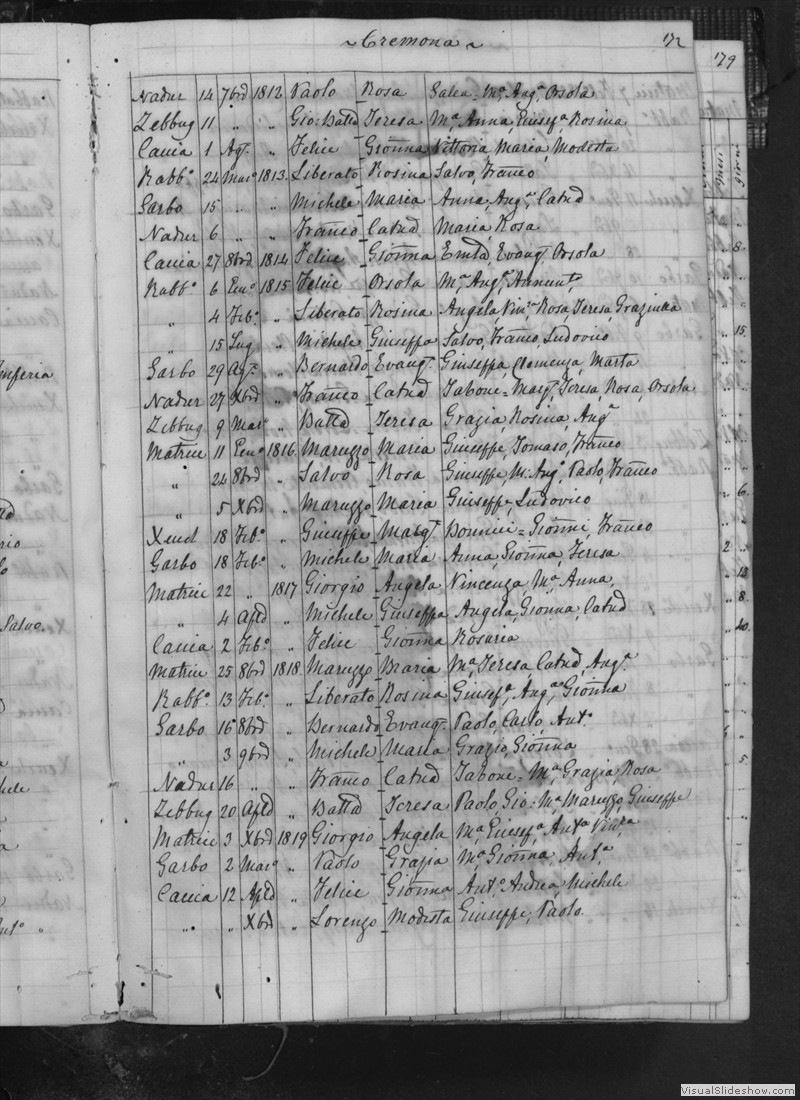 ~ Cremona ~ 172
179
Nadur 14 7brd 1812 Paolo Rosa Galea = Mª, Angª, Orsola
Zebbug 11 " " Gio: Battd Teresa Mª Anna, Giusefª, Rosina
Caccia 1 Agt. " Felice Gionna Vittoria Maria, Modesta
Rabbº 24 Marº 1813 Liberato Rosina Salvo, Franco
Garbo 15 " " Michele Maria Anna, Angª, Catud
Nadur 6 " " Franco Catud Maria Rosa
Caccia 27 8brd 1814 Felice Gionna Emld, Evangt. Orsola
Rabbº 6 Genº 1815 Felice Orsola Mª, Angª, Annunt.
" 4 Febº " Liberato Rosina Angela, Vinª, Rosa, Teresa, Graziulla
" 15 Lug " Michele Giuseppa Salvo, Franco, Ludovico
Garbo 29 Agt. " Bernardo Evangt. Giuseppa, Clemenza, Marta
Nadur 27 Xbrd " Franco Catud Tabone = Margt, Teresa, Rosa, Orsola
Zebbug 9 Marº " Battd Teresa Grazia, Rosina, Angª
Matrice 11 Genº 1816 Maruzzo Maria Giuseppe, Tomaso, Franco
" 24 8brd " Salvo Rosa Giuseppe, M. Angº, Paolo, Franco
" 5 Xbrd " Maruzzo Maria Giuseppe, Ludovico
Xeuch 18 Febº " Giuseppe Margt. Bonnici = Gionni, Franco
Garbo 18 Febº " Michele Maria Anna, Gionna, Teresa
Matrice 22 " 1817 Giorgio Angela Vincenza, Mª Anna,
" 4 Apld " Michele Giuseppa Angela, Gionna, Catud
Caccia 2 Febº " Felice Gionna Rosaria
Matrice 25 8brd 1818 Maruzzo Maria Mª, Teresa, Catud, Angª
Rabbº 13 Febº " Liberato Rosina Giusefª, Angª, Gionna
Garbo 16 8brd " Bernardo Evangt. Paolo, Carlo, Antº
" 3 9brd " Michele Maria Grazio, Gionna
Nadur 16 " " Franco Catud Tabone = Mª, Grazia, Rosa
Zebbug 20 Apld " Battd Teresa Paolo, Gio: Mª, Maruzzo, Giuseppe
Matrice 3 Xbrd 1819 Giorgio Angela Mª, Giusefª, Antª, Vinzª
Garbo 2 Marº " Paolo Grazia Mª, Gionna, Antª
Caccia 12 Apld " Felice Gionna Antº, Andrea, Michele
" " Xbrd " Lorenzo Modesta Giuseppe, Paolo.
Inferia
Salvo.
VisualSlideshow.com